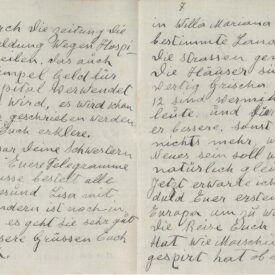 rch die zeitung die
ldung wegen Hospi
eilen, das auch
mpel Geld für
pital verwendet
wird, es wird schon
geschrieben werden
Euch erkläre.
ar Deine Schwestern
Euere Telegramme
usse bestelt alle
esund Lisa mit
ndern ist noch in
es geht sie sehr gut
sere Grüssen Euch
7
in Willa Mariana
bestimmte Land
Die Strassen gen
Die Häuser si
Vertig
12 sind vermih
leute, und
er bessere, sonst
nichts mehr w
Neues sein soll w
natürlich glei
Jetzt erwarte ich
duld Euer ersten
Europa um zu wi
die Reise Euch
Hat wie
gespürt hat ob